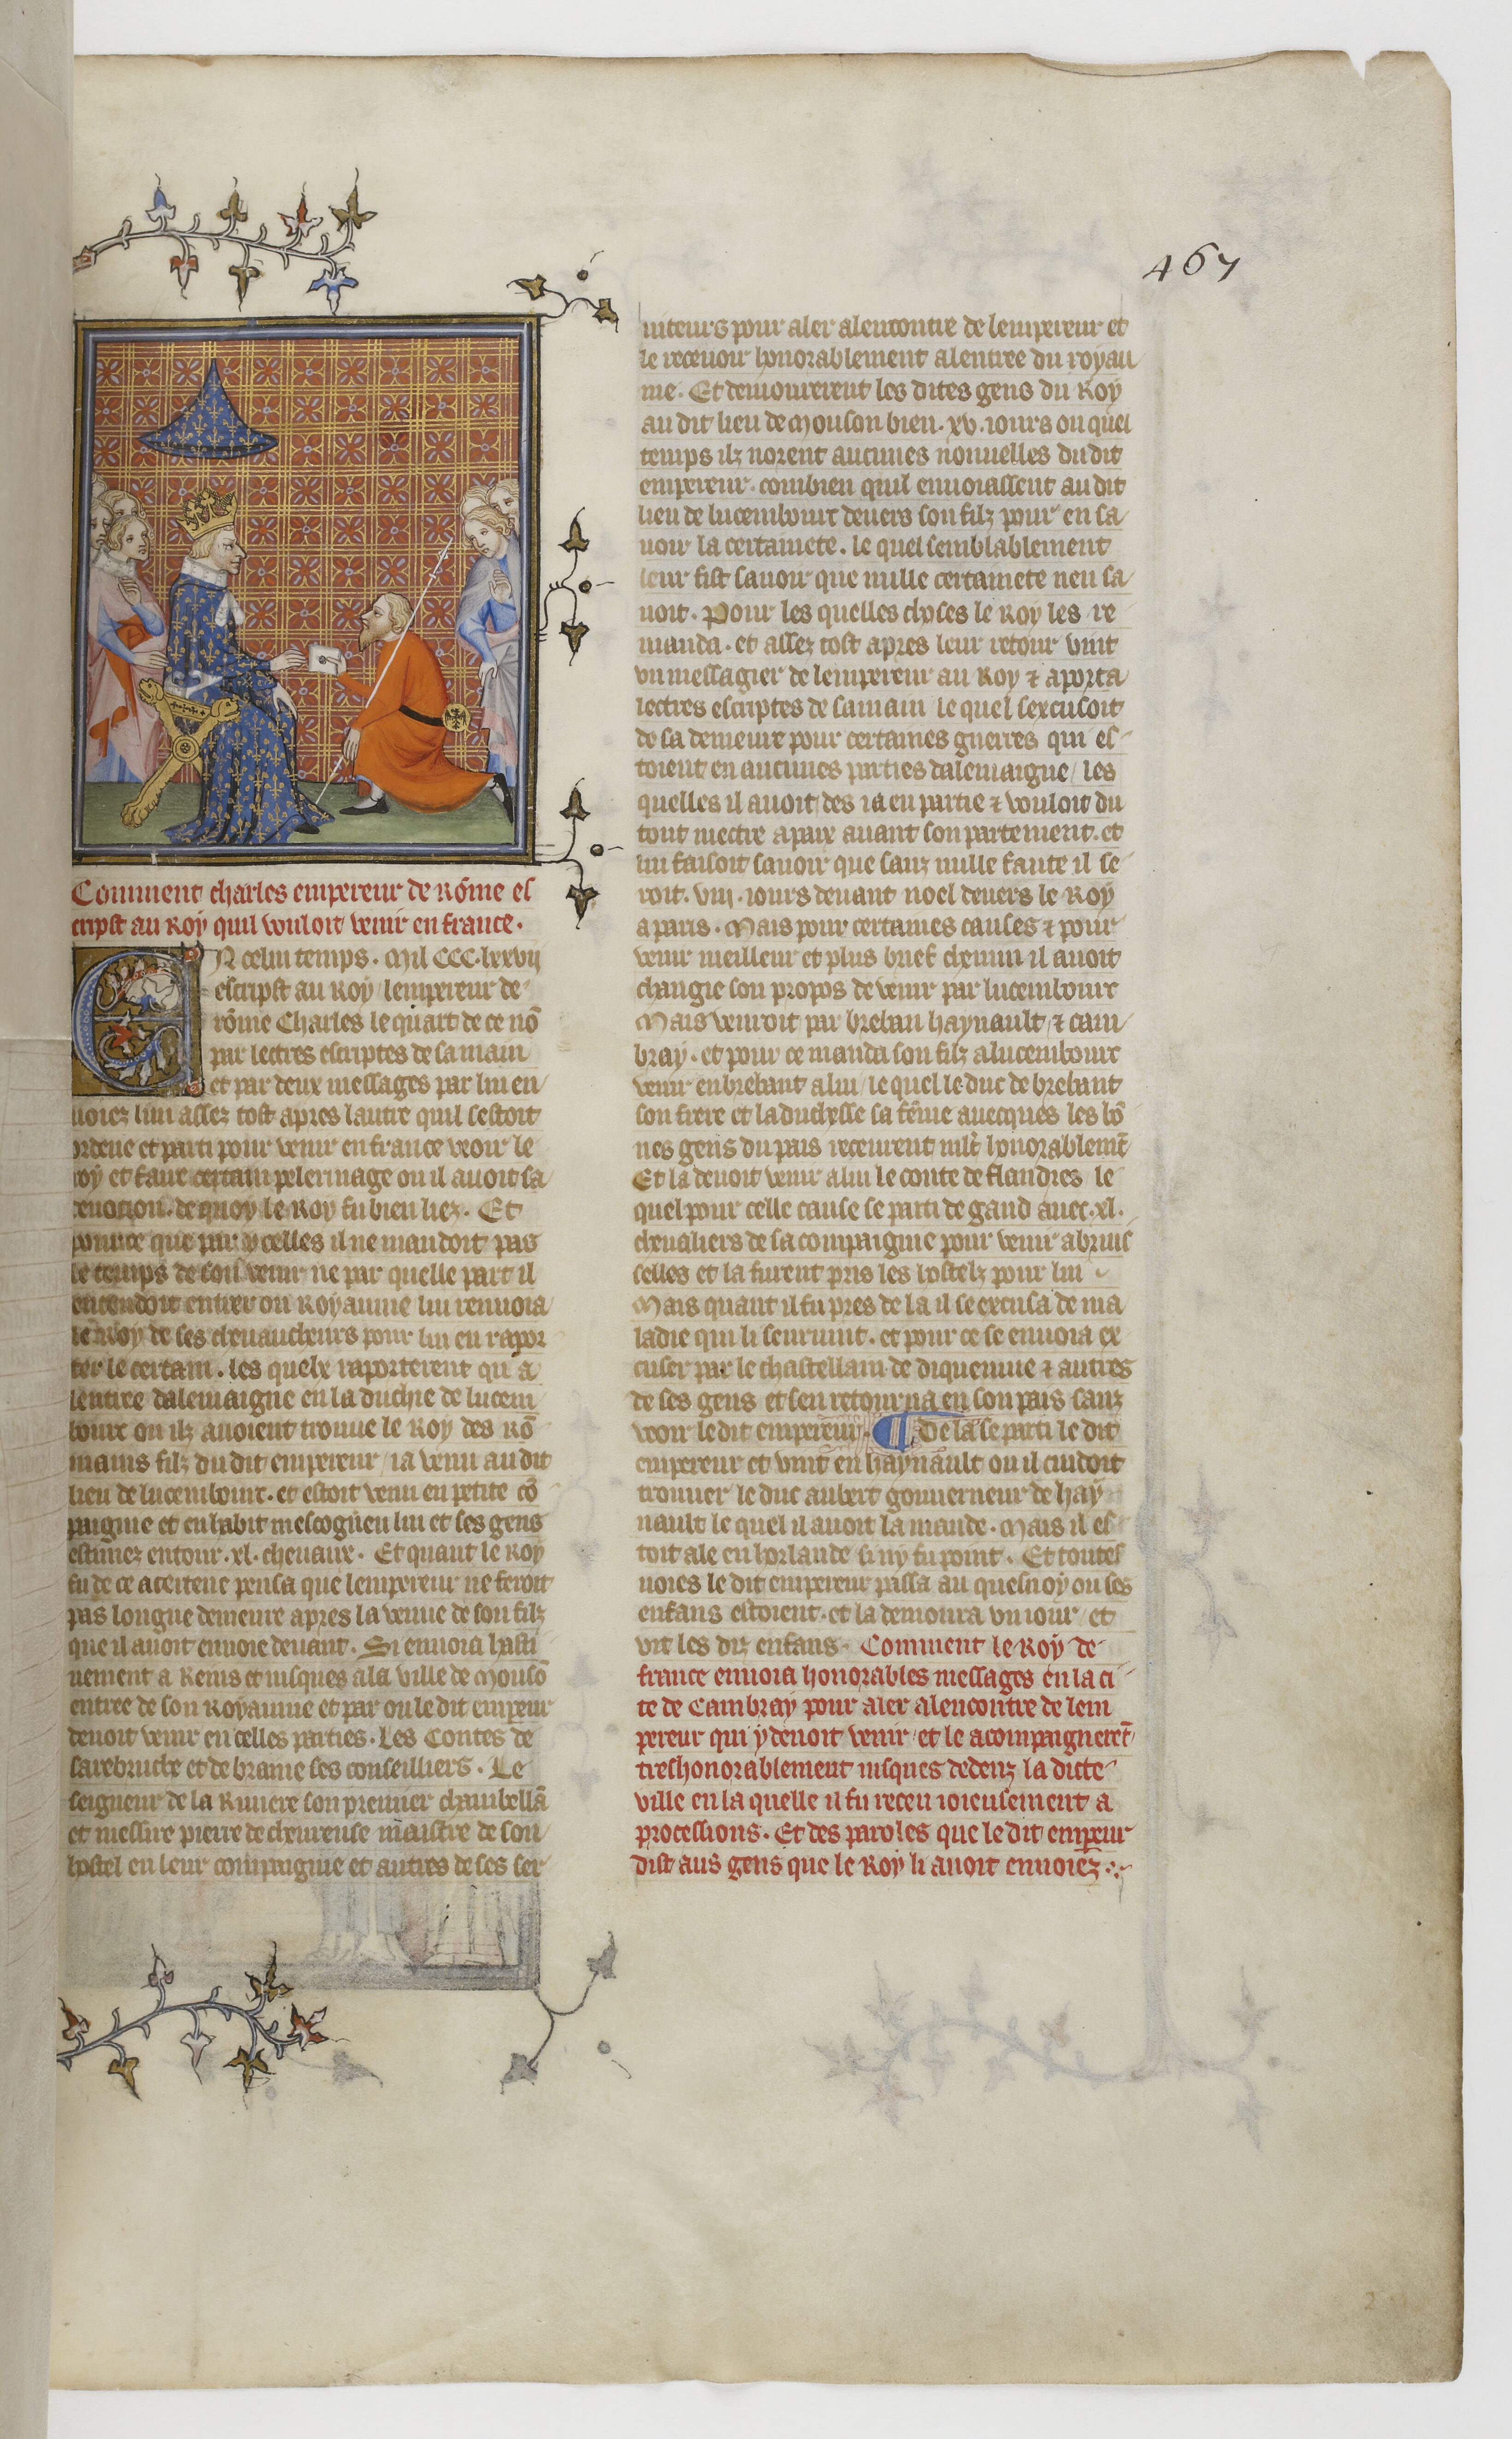 467
Comment charles empereur de Rõme es
cript au Roy quil vouloit venir en france.
EN celui temps. Mil CCC. lxxvij
escript au Roy lempereur de
rõme Charles le quart de ce nõ
par lectres escriptes de sa main
et par deux messages par lui en
uoiez lun assez tost apres lautre quil sestoit
ordene et parti pour venir en france veoir le
roy et faire certain pelerinage ou il auoit sa
deuotion. de quoy le Roy fu bien liez. Et
pour ce que par ycelles il ne mandoit pas
le temps de son venir ne par quelle part il
entendoit entrer ou Royaume lui renuoia
le Roy de ses cheuaucheurs pour lui en rapor
ter le certain. les quelx raporterent qu a
lentree dalemaigne en la duchie de lucem
bourc ou ilz auoient trouue le Roy des Rõ
mains filz du dit empereur ia venu au dit
lieu de lucembourc. et estoit venu en petite cõ
paignie et en habit mescogneu lui et ses gens
estimez entour .xl. cheuaux. Et quant le Roy
fu de ce acertene pensa que lempereur ne feroit
pas longue demeure apres la venue de son filz
que il auoit enuoie deuant. Si enuoia hasti
uement a Reins et iusques a la ville de Mousõ
entree de son Royaume et par ou le dit empeur
deuoit venir en celles parties. Les Contes de
sarebruche et de braine ses conseilliers. Le
seigneur de la Riuiere son premier chambellã
et messire pierre de cheureuse maistre de son
hostel en leur compaignie et autres de ses ser
uiteurs pour aler alencontre de lempereur et
le receuoir honorablement alentree du royau
me. Et demourerent les dites gens du Roy
au dit lieu de Mouson bien .xv. iours ou quel
temps ilz norent aucunes nouuelles du dit
empereur. combien quil enuoiassent au dit
lieu de lucembourc deuers son filz pour en sa
uoir la certainete. le quel semblablement
leur fist sauoir que nulle certainete nen sa
uoit. Pour les quelles choses le Roy les re
manda. et assez tost apres leur retour vint
vn messagier de lempereur au Roy & aporta
lectres escriptes de sa main le quel sexcusoit
de sa demeure pour certaines guerres qui es
toient en aucunes parties dalemaigne les
quelles il auoit des ia en partie & vouloit du
tout mectre a paix auant son partement. et
lui faisoit sauoir que sanz nulle faute il se
roit .viij. iours deuant noel deuers le Roy
a paris. Mais pour certaines causes & pour
venir meilleur et plus brief chemin il auoit
changie son propos de venir par lucembourc
Mais venroit par breban haynault & cam
bray. et pour ce manda son filz a lucembourc
venir en brebant a lui le quel le duc de brebant
son frere et la duchesse sa fẽme auecques les bõ
nes gens du pais receurent mlt honorablemẽt
Et la deuoit venir a lui le conte de flandres le
quel pour celle cause se parti de gand auec .xl.
cheualiers de sa compaignie pour venir a bruis
selles et la furent pris les hostelz pour lui
Mais quant il fu pres de la il se excusa de ma
ladie qui li seuruint. et pour ce se enuoia ex
cuser par le chastellain de diquemue & autres
de ses gens et sen retourna en son pais sanz
veoir le dit empereur. ¶ De la se parti le dit
empereur et vint en haynault ou il cuidoit
trouuer le duc aubert gouuerneur de hay
nault le quel il auoit la mande. Mais il es
toit ale en horlande si ny fu point. Et toutes
uoies le dit empereur passa au quesnoy ou ses
enfans estoient. et la demoura vn iour et
vit les diz enfans. Comment le Roy de
france enuoia honorables messages en la ci
te de Cambray pour aler alencontre de lem
pereur qui y deuoit venir et le acompaignerẽt
treshonorablement iusques dedenz la dicte
ville en la quelle il fu receu ioieusement a
processions. Et des paroles que le dit empeur
dist aus gens que le Roy li auoit enuoiez.